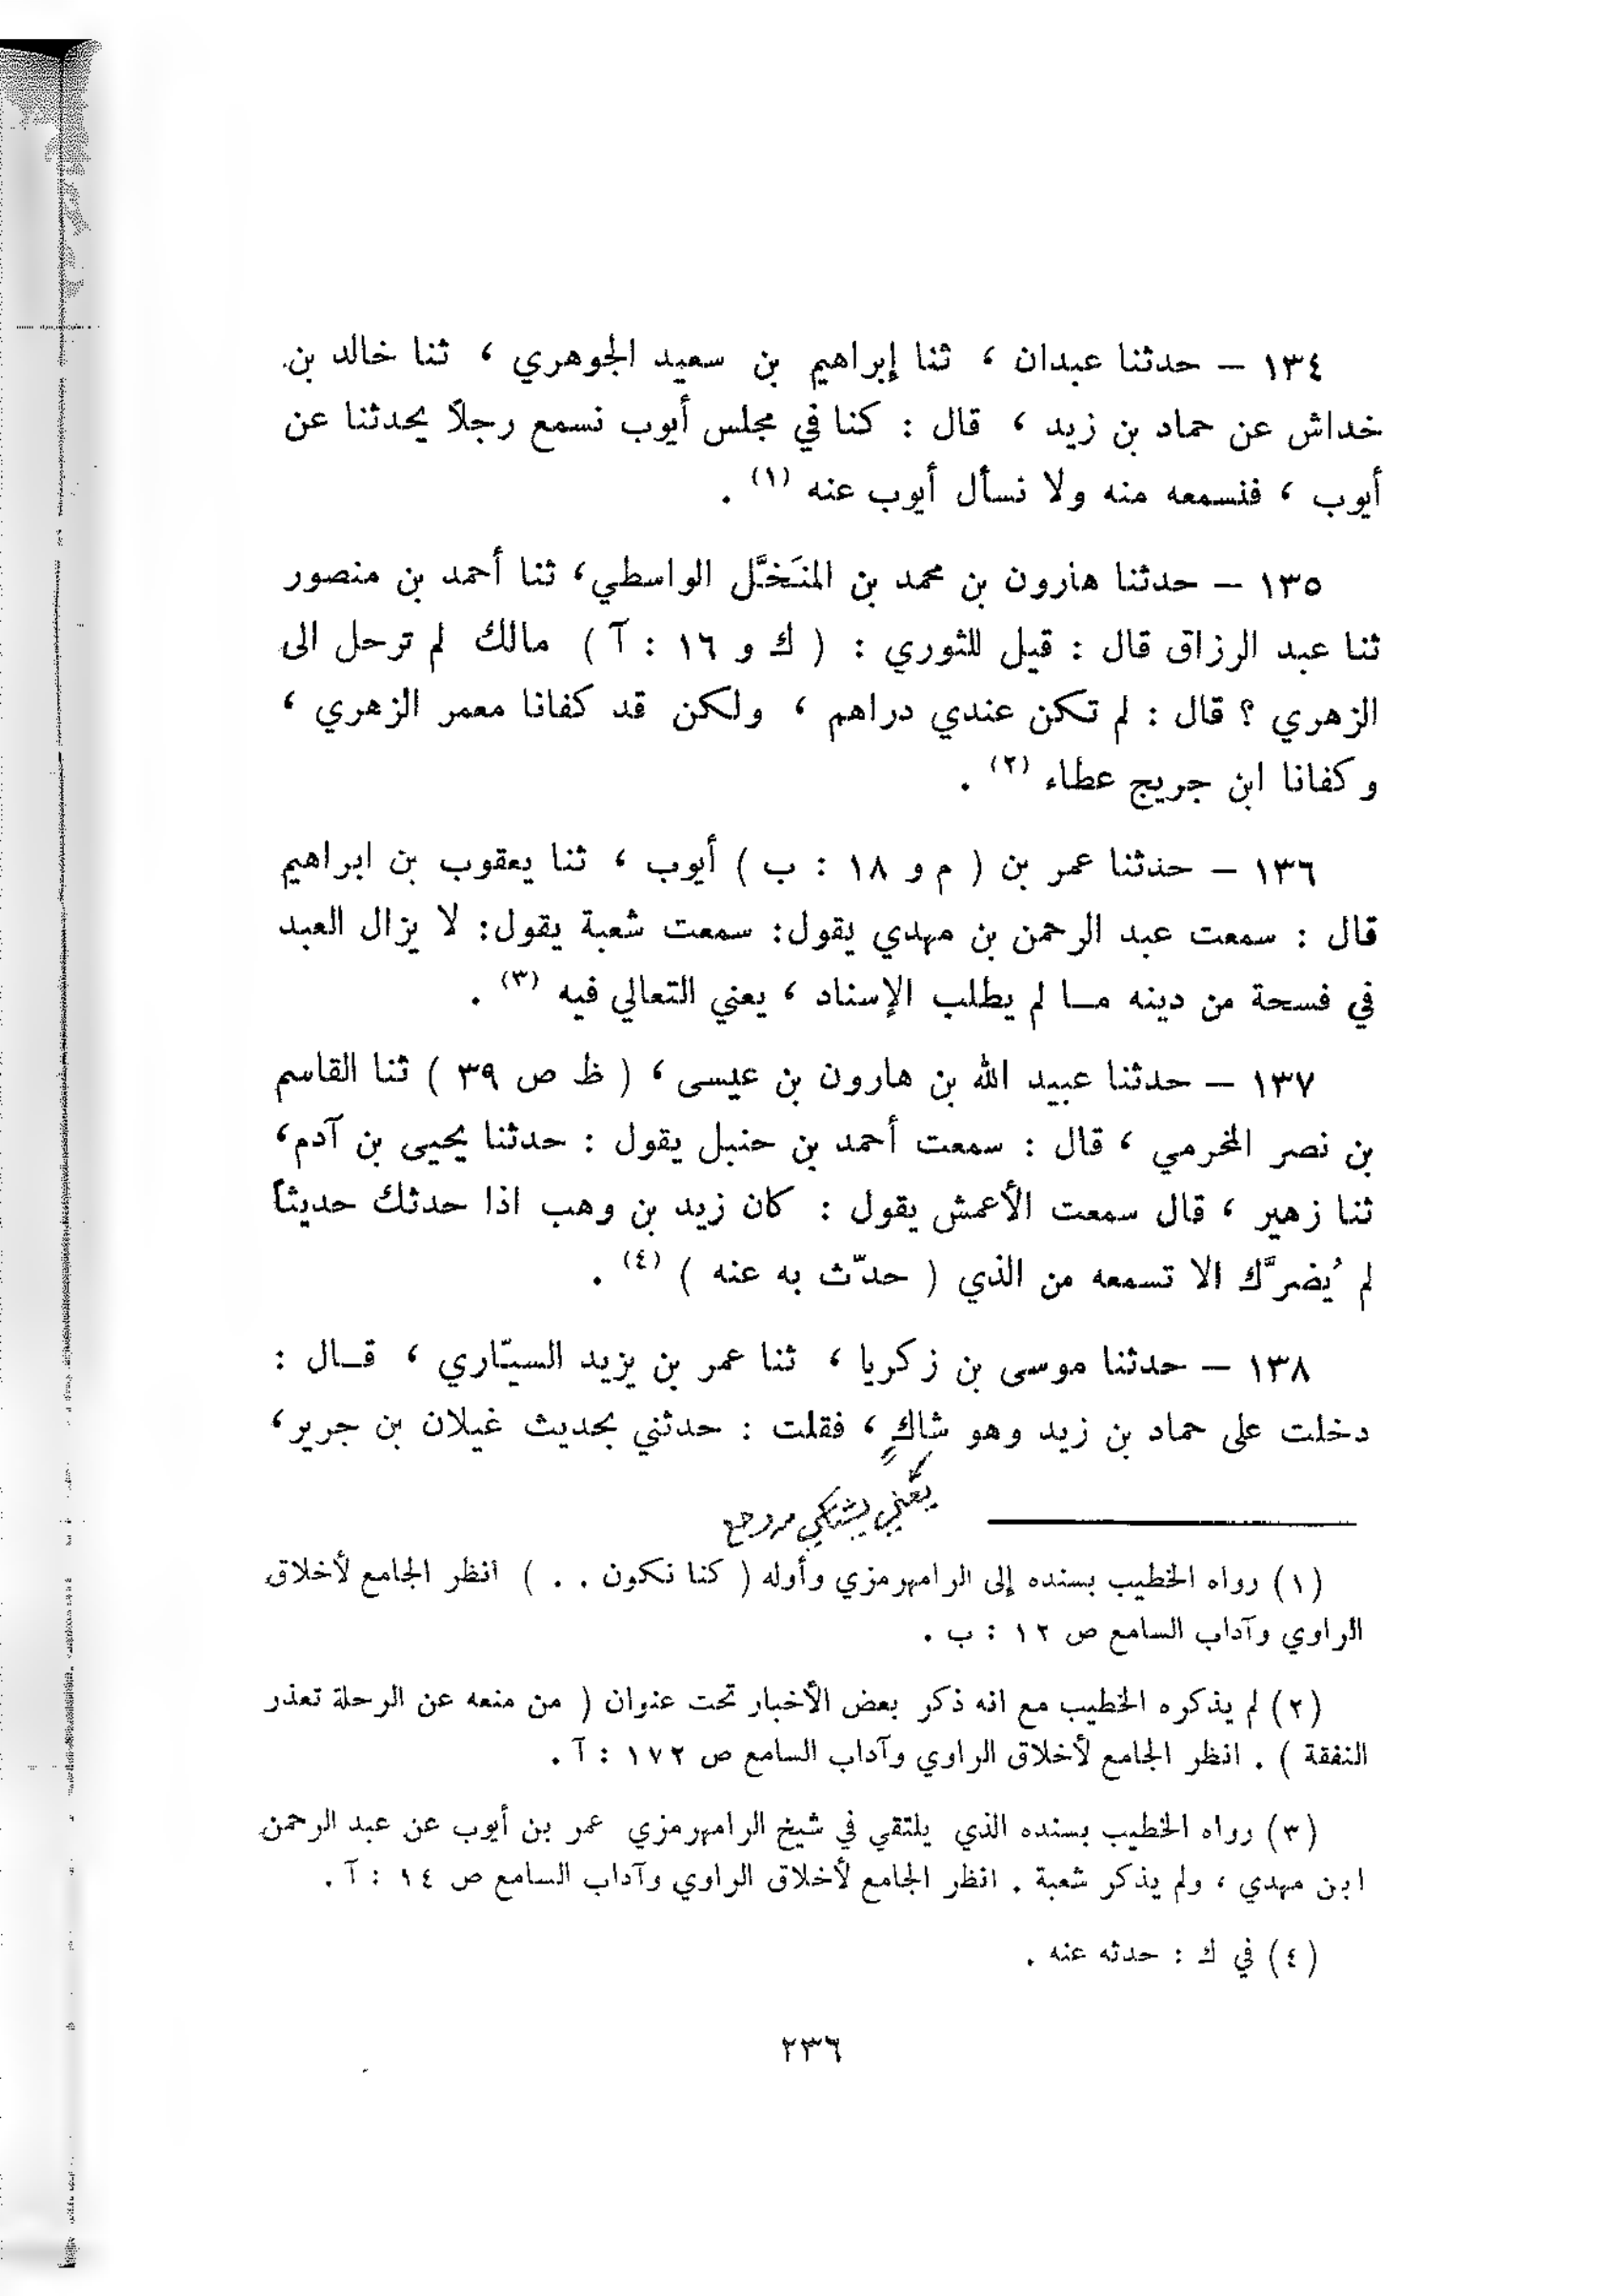 ١٣٤ – حدثنا عبدان ، ثنا إبراهيم بن سعيد الجوهري ، ثنا خالد بن
خداش عن حماد بن زيد ، قال : كنا في مجلس أيوب نسمع رجلاً يحدثنا عن
أيوب ، فنسمعه منه ولا نسأل أيوب عنه (١) .
١٣٥ – حدثنا هارون بن محمد بن المنَخَّل الواسطي، ثنا أحمد بن منصور
ثنا عبد الرزاق قال : قيل للثوري : ( ك و ١٦ : آ ) مالك لم ترحل الى
الزهري ؟ قال : لم تكن عندي دراهم ، ولكن قد كفانا معمر الزهري ،
وكفانا ابن جريج عطاء (٢) .
١٣٦ – حدثنا عمر بن ( م و ١٨ : ب ) أيوب ، ثنا يعقوب بن ابراهيم
قال : سمعت عبد الرحمن بن مهدي يقول: سمعت شعبة يقول: لا يزال العبد
في فسحة من دينه مــا لم يطلب الإسناد ، يعني التعالي فيه (٣) .
١٣٧ – حدثنا عبيد الله بن هارون بن عيسى ، ( ظ ص ٣٩ ) ثنا القاسم
بن نصر المخرمي ، قال : سمعت أحمد بن حنبل يقول : حدثنا يحيى بن آدم،
ثنا زهير ، قال سمعت الأعمش يقول : كان زيد بن وهب اذا حدثك حديثاً
لم يُضرَّك الا تسمعه من الذي ( حدّث به عنه ) (٤) .
١٣٨ – حدثنا موسى بن زكريا ، ثنا عمر بن يزيد السيّاري ، قــال :
دخلت على حماد بن زيد وهو شاكٍ ، فقلت : حدثني بحديث غيلان بن جرير،
يعني يشتكي
(١) رواه الخطيب بسنده إلى الرامهرمزي وأوله ( كنا نكون . . ) انظر الجامع لأخلاق
الراوي وآداب السامع ص ١٢ : ب .
(٢) لم يذكره الخطيب مع انه ذكر بعض الأخبار تحت عنوان ( من منعه عن الرحلة تعذر
النفقة ) . انظر الجامع لأخلاق الراوي وآداب السامع ص ١٧٢ : آ .
(٣) رواه الخطيب بسنده الذي يلتقي في شيخ الرامهرمزي عمر بن أيوب عن عبد الرحمن
ابن مهدي ، ولم يذكر شعبة . انظر الجامع لأخلاق الراوي وآداب السامع ص ١٤ : آ .
(٤) في ك : حدثه عنه .
٢٣٦